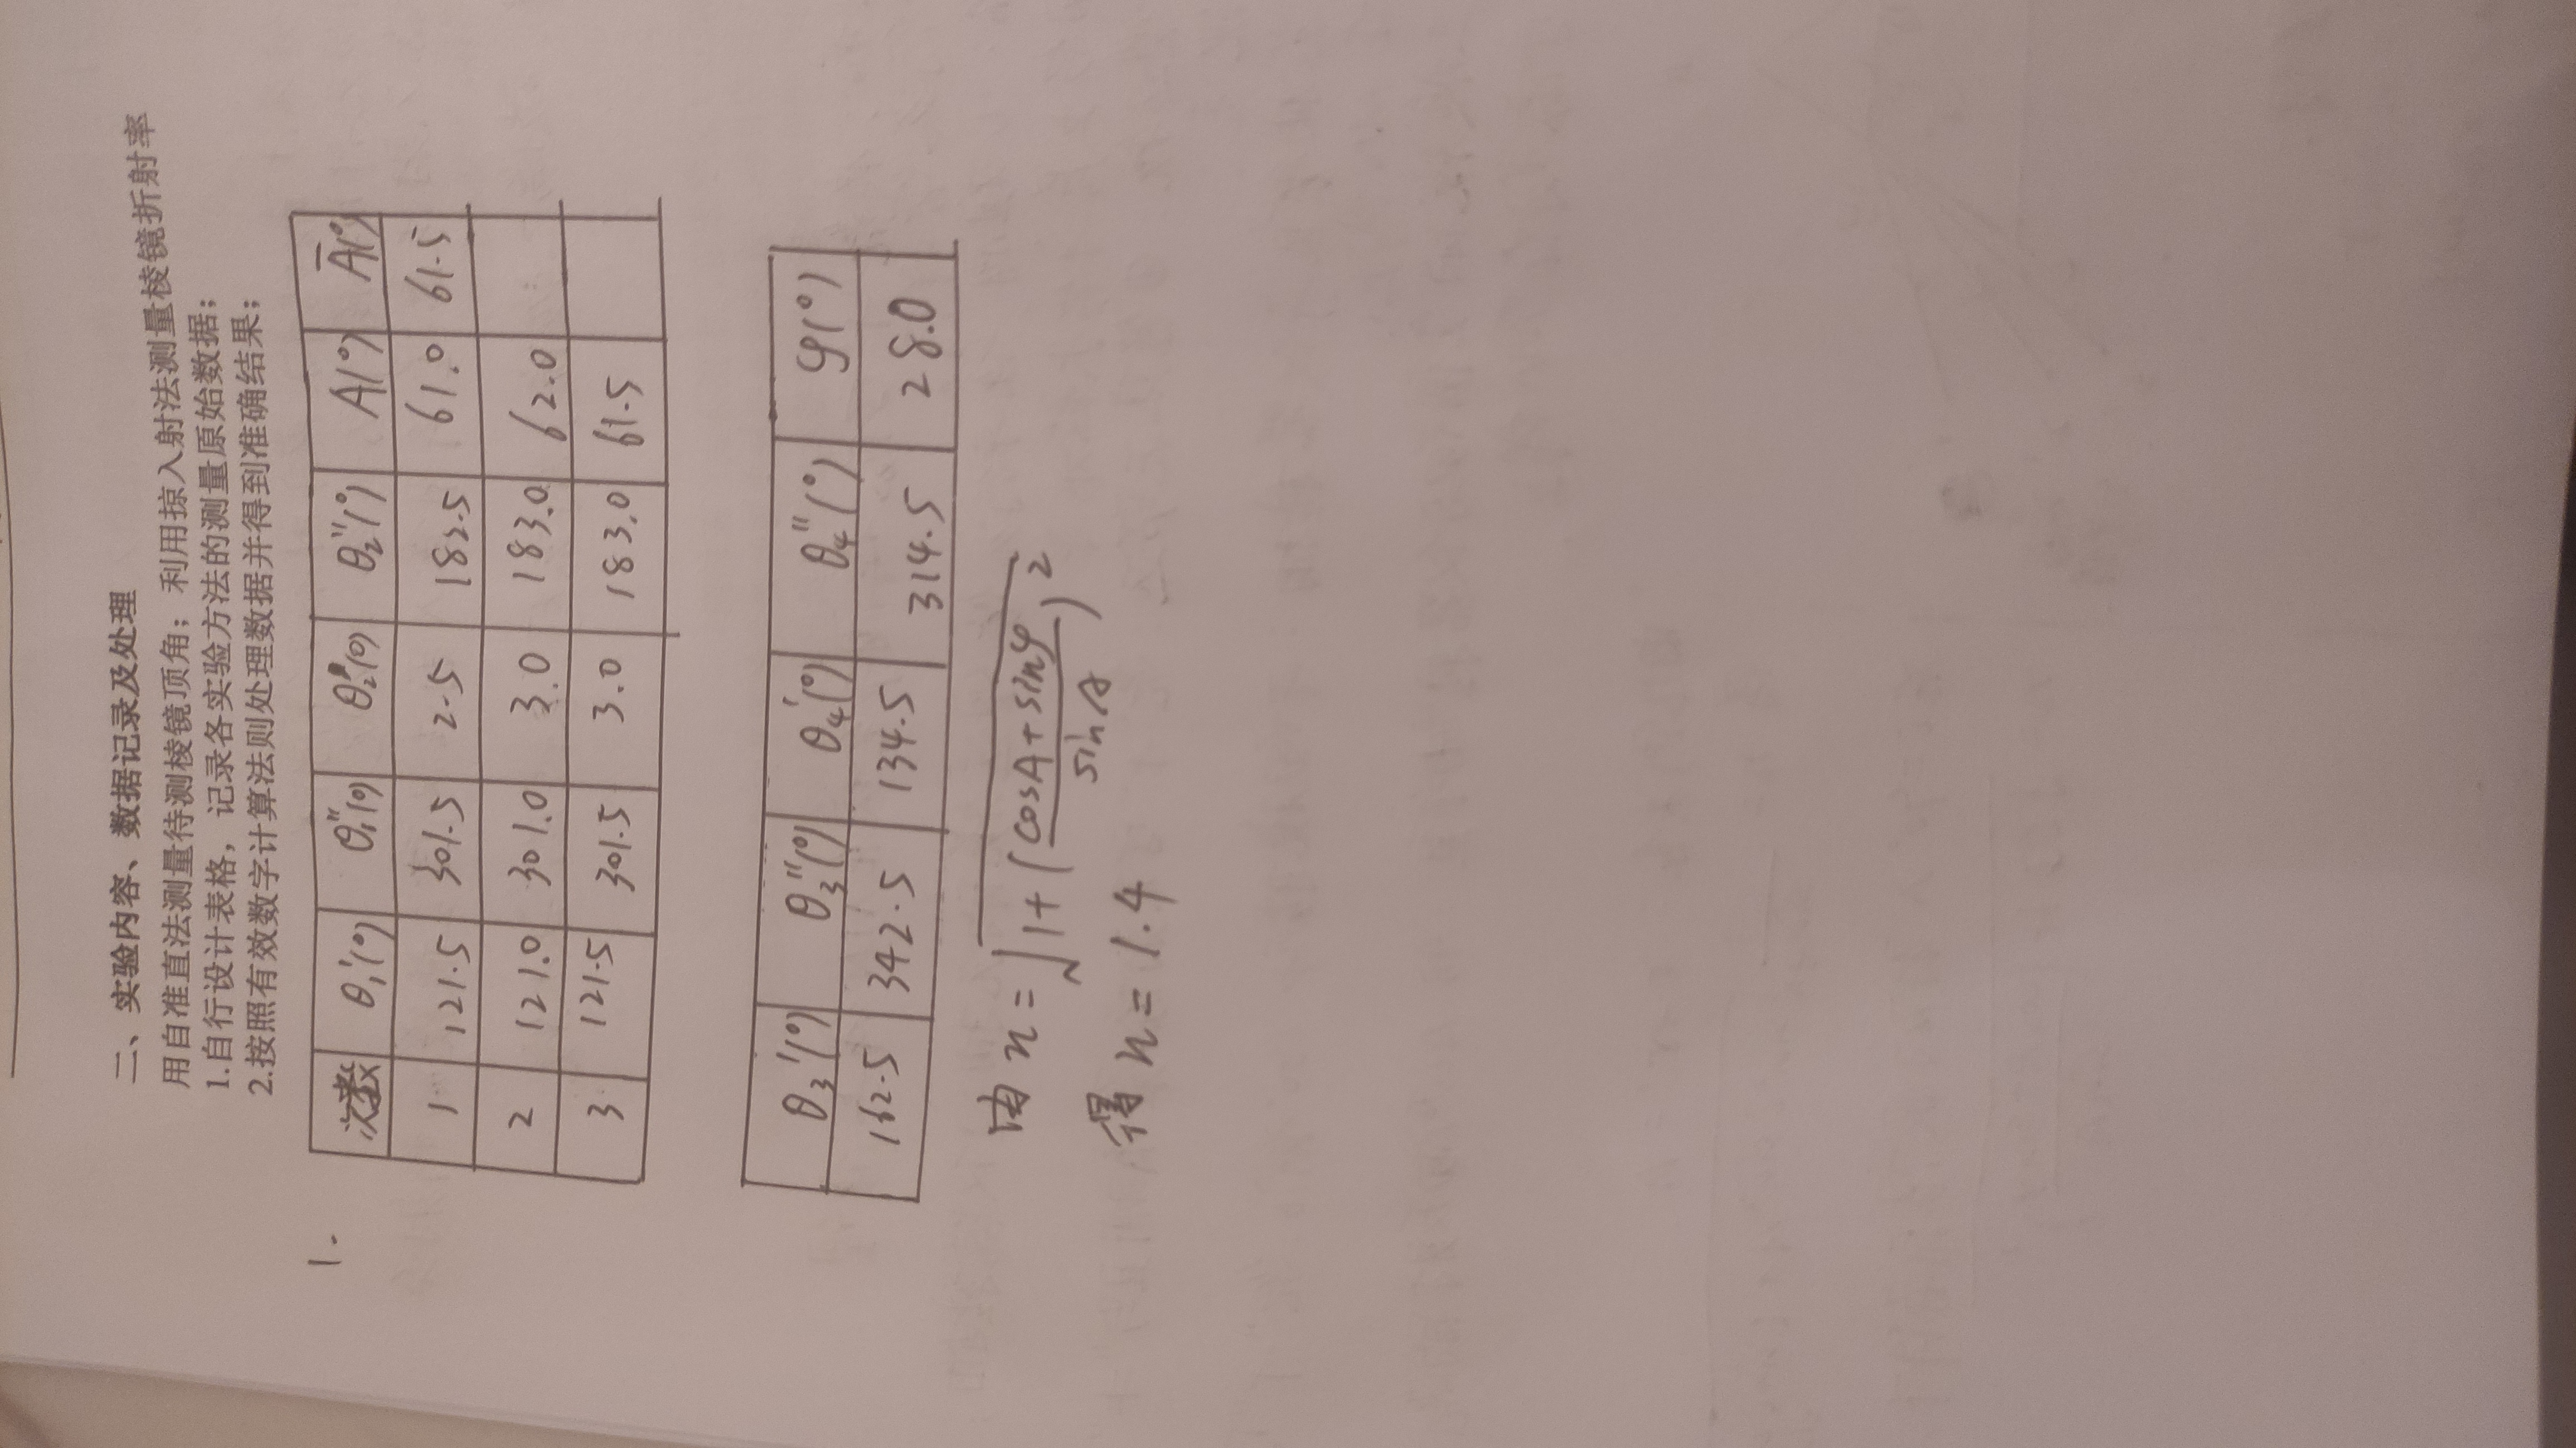 二、实验内容、数据记录及处理
用自准直法测量待测棱镜顶角；利用掠入射法测量棱镜折射率
1.自行设计表格，记录各实验方法的测量原始数据；
2.按照有效数字计算法则处理数据并得到准确结果；
1.
次数 θ₁'(°) θ₁''(°) θ₂'(°) θ₂''(°) A(°) Ā(°)
1 121.5 301.5 2.5 182.5 61.0 61.5
2 121.0 301.0 3.0 183.0 62.0
3 121.5 301.5 3.0 183.0 61.5
θ₃'(°) θ₃''(°) θ₄'(°) θ₄''(°) φ(°)
162.5 342.5 134.5 314.5 28.0
由 n = √(1+(cosA+sinφ / sinA)²)
得 n = 1.4